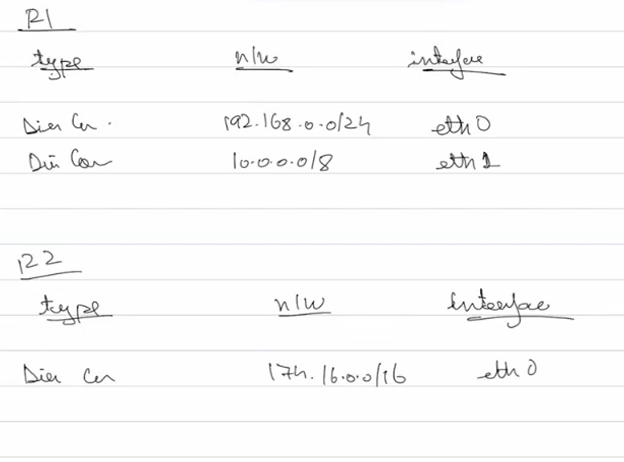 R1
type n/w interface
Dir Con. 192.168.0.0/24 eth0
Dir Con 10.0.0.0/8 eth1
R2
type n/w interface
Dir Con 174.16.0.0/16 eth0